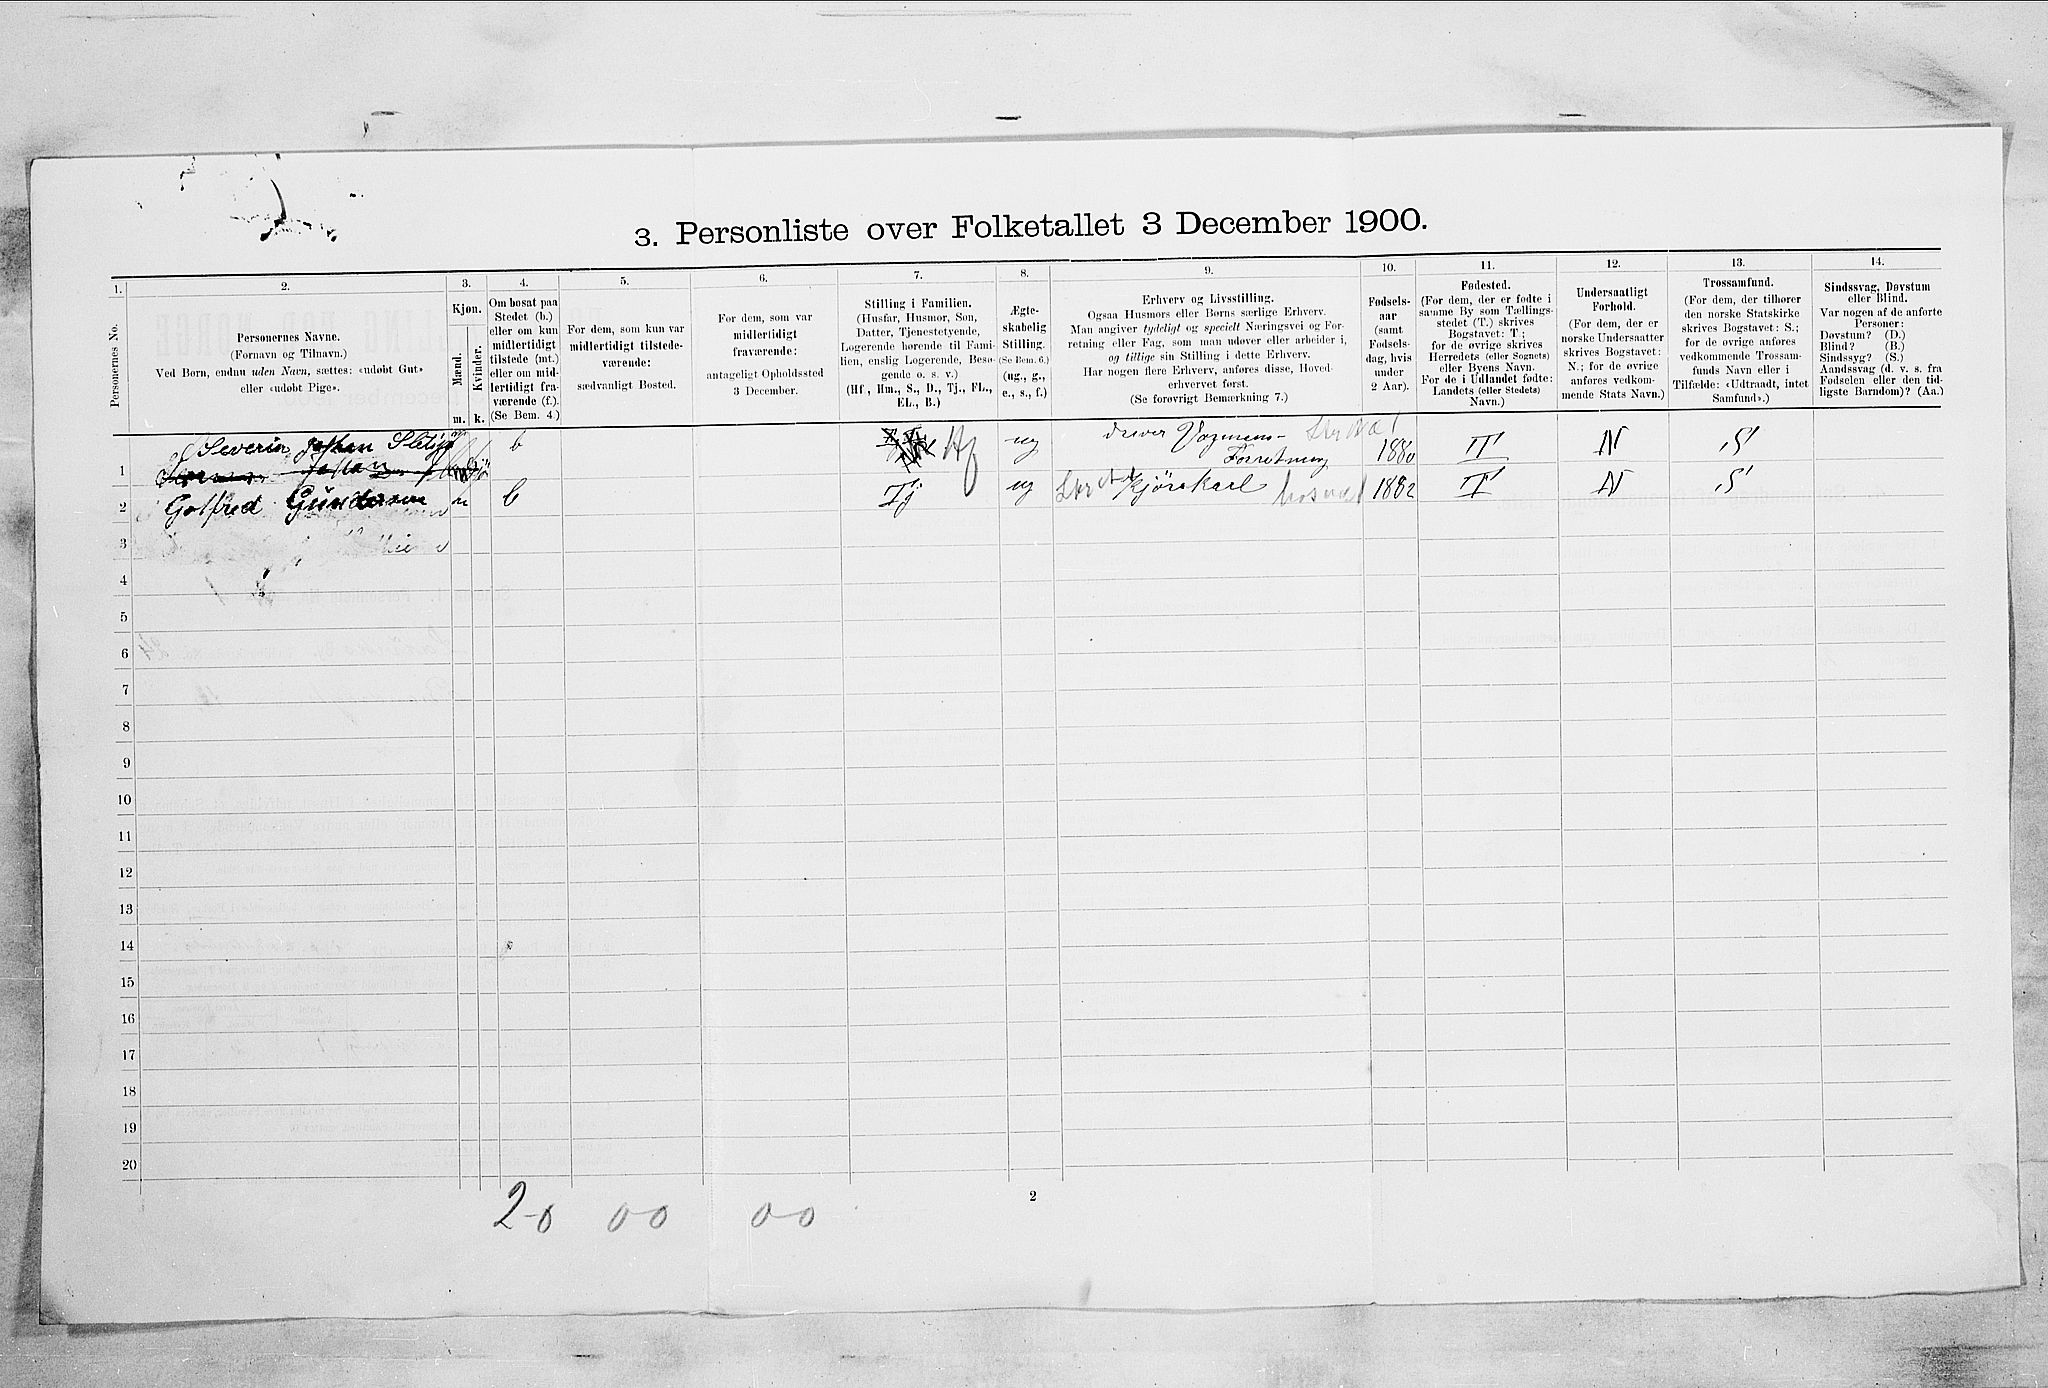 3. Personliste over Folketallet 3 December 1900.
1.
2.
3.
4.
5.
6.
7.
8.
9.
10.
11.
12.
13.
14.
Personernes No.
Personernes Navne.
(Fornavn og Tilnavn.)
Ved Børn, endnu uden Navn, sættes: «udøbt Gut»
eller «udøbt Pige».
Kjøn.
Mænd.
Kvinder.
m.
k.
Om bosat paa
Stedet (b.)
eller om kun
midlertidigt
tilstede (mt.)
eller om mid-
lertidigt fra-
værende (f.).
(Se Bem. 4.)
For dem, som kun var
midlertidigt tilstede-
værende:
sædvanligt Bosted.
For dem, som var
midlertidigt
fraværende:
antageligt Opholdssted
3 December.
Stilling i Familien.
(Husfar, Husmor, Søn,
Datter, Tjenestetyende,
Logerende hørende til Fami-
lien, enslig Logerende, Besø-
gende o. s. v.)
(Hf., Hm., S., D., Tj., FL.,
EL., B.)
Ægte-
skabelig
Stilling.
(Se Bem. 6.)
(ug., g.,
e., s., f.)
Erhverv og Livsstilling.
Ogsaa Husmors eller Børns særlige Erhverv.
Man angiver tydeligt og specielt Næringsvei og For-
retning eller Fag, som man udøver eller arbeider i,
og tillige sin Stilling i dette Erhverv.
Har nogen flere Erhverv, anføres disse, Hoved-
erhvervet først.
(Se forøvrigt Bemærkning 7.)
Fødsels-
aar
(samt
Fødsels-
dag, hvis
under
2 Aar).
Fødested.
(For dem, der er fødte i
samme By som Tællings-
stedet (T.) skrives
Bogstavet: T;
for de øvrige skrives
Herredets (eller Sognets)
eller Byens Navn.
For de i Udlandet fødte:
Landets (eller Stedets)
Navn.)
Undersaatligt
Forhold.
(For dem, der er
norske Undersaatter
skrives Bogstavet:
N.; for de øvrige
anføres vedkom-
mende Stats Navn.)
Trossamfund.
(For dem, der tilhører
den norske Statskirke
skrives Bogstavet: S.;
for de øvrige anføres
vedkommende Trossam-
funds Navn eller i
Tilfælde: «Udtraadt, intet
Samfund».)
Sindssvag, Døvstum
eller Blind.
Var nogen af de anførte
Personer:
Døvstum? (D.)
Blind? (B.)
Sindssyg? (S.)
Aandssvag (d. v. s. fra
Fødselen eller den tid-
ligste Barndom)? (Aa.)
1 Severin Johan b Hf ug driver Vogmans- 1880 T N S
Forretning
2 Gotfred Gundersen m b Tj ug Kjørekarl 1882 T N S
3
4
5
6
7
8
9
10
11
12
13
14
15
16
17
18
19
20
2-0 0-0 0-0
2